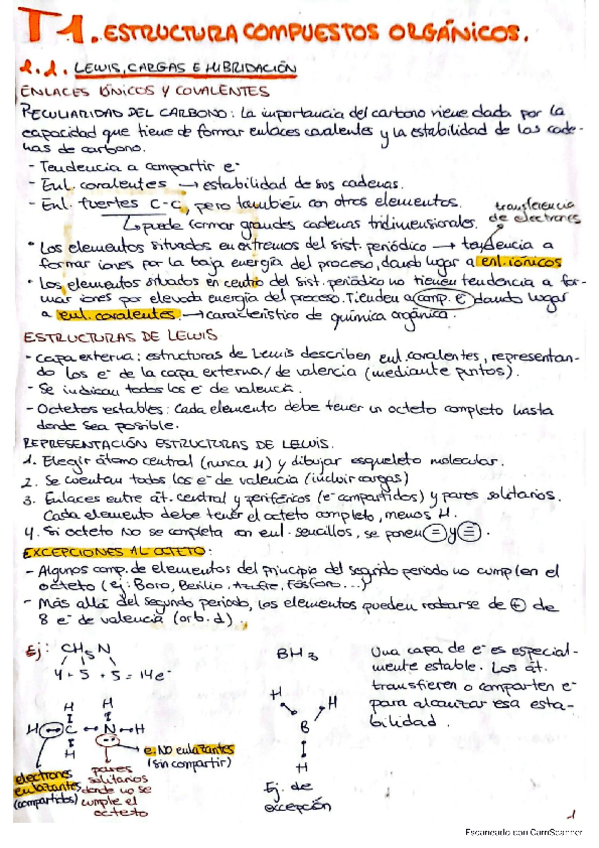 T1. ESTRUCTURA COMPUESTOS ORGÁNICOS.
1.1. LEWIS, CARGAS E HIBRIDACIÓN
ENLACES IÓNICOS Y COVALENTES
PECULIARIDAD DEL CARBONO: La importancia del carbono viene dada por la
capacidad que tiene de formar enlaces covalentes y la estabilidad de las cade-
nas de carbono.
- Tendencia a compartir e⁻
- Enl. covalentes → estabilidad de sus cadenas.
- Enl. fuertes C-C, pero también con otros elementos.
↳ puede formar grandes cadenas tridimensionales.
transferencia
de electrones
• Los elementos situados en extremos del sist. periódico → tendencia a
formar iones por la baja energía del proceso, dando lugar a enl. iónicos
• Los elementos situados en centro del sist. periódico no tienen tendencia a for-
mar iones por elevada energía del proceso. Tienden a comp. e⁻ dando lugar
a enl. covalentes. → característico de química orgánica.
ESTRUCTURAS DE LEWIS
- Capa externa: estructuras de Lewis describen enl. covalentes, representan-
do los e⁻ de la capa externa/de valencia (mediante puntos).
- Se indican todos los e⁻ de valencia.
- Octetos estables: Cada elemento debe tener un octeto completo hasta
donde sea posible.
REPRESENTACIÓN ESTRUCTURAS DE LEWIS.
1. Elegir átomo central (nunca H) y dibujar esqueleto molecular.
2. Se cuentan todos los e⁻ de valencia (incluir cargas)
3. Enlaces entre át. central y periféricos (e⁻ compartidos) y pares solitarios.
Cada elemento debe tener el octeto completo, menos H.
4. Si octeto no se completa con enl. sencillos, se ponen = y ≡.
EXCEPCIONES AL OCTETO:
- Algunos comp. de elementos del principio del segundo periodo no cumplen el
octeto (ej: Boro, Berilio, Azufre, Fósforo...)
- Más allá del segundo periodo, los elementos pueden rodearse de ⊕ de
8 e⁻ de valencia (orb. d).
Ej: CH₅N
4 + 5 + 5 = 14e⁻
H H
H C N H
H
electrones
enlazantes
(compartidos)
pares
solitarios
donde no se
cumple el
octeto
e⁻ NO enlazantes
(sin compartir)
BH₃
H H
B
H
Ej. de
excepción
Una capa de e⁻ es especial-
mente estable. Los át.
transfieren o comparten e⁻
para alcanzar esa esta-
bilidad.
1
Escaneado con CamScanner